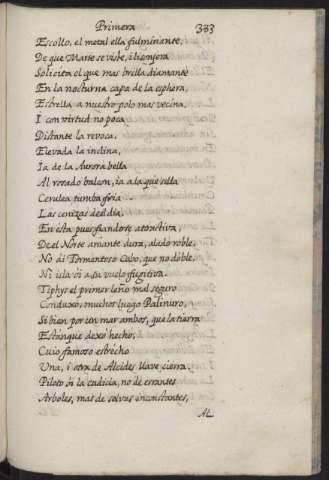 Primera 383
Escollo, el metal ella fulminante,
De que Marte se viste, i lisonjera
Solicita el que mas brilla diamante
En la nocturna capa de la esphera,
Estrella a nuestro polo mas vecina,
I con virtud no poca
Distante la revoca,
Elevada la inclina,
Ia de la Aurora bella
Al rosado balcon, ia a la que sella
Cerulea tumba fria
Las cenizas del dia,
En esta pues fiandose atractiva,
De el Norte amante dura, alado roble,
No ai Tormentoso Cabo, que no doble,
Ni isla oi a su vuelo fugitiva.
Tiphys el primer leño mal seguro
Conduxo, muchos luego Palinuro,
Si bien por un mar ambos, que la tierra
Estanque dexó hecho,
Cuio famoso estrecho
Una, i otra de Alcides llave cierra.
Piloto oi la cudicia, no de errantes
Arboles, mas de selvas inconstantes,
Al